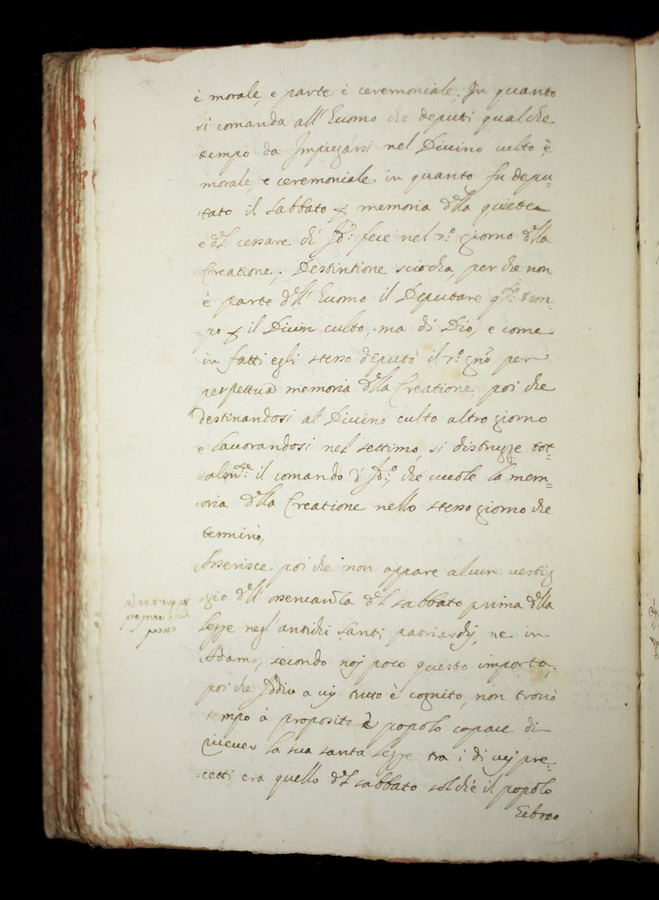 è morale, e parte è ceremoniale. In quanto
si comanda all'Huomo che deputi qualche
tempo da Impiegarsi nel Divino culto è
morale, e ceremoniale in quanto fu depu=
=tato il sabbato memoria dlla quiete
e dl cessare che Jd:o fece nel 7:o giorno dlla
Creatione. Destintione sciocha, per che non
è parte dll'Huomo il Deputare qto: tem=
=po il Divin culto, ma di Dio, e come
in fatti egli stesso deputò il 7:o gno per
perpettua memoria dlla Creatione, poi che
destinandosi al Divino culto altro giorno
e lavorandosi nel settimo, si distrugge tot=
=almte: il comando di Jd:o, che vuole la mem=
=oria dlla Creatione nello stesso giorno che
terminò,
Asserisce poi che non appare alcun vestig=
=gio dll' dl sabbato prima dlla
legge negl'antichi santi patriarchi, ne in
Adamo, secondo noj poco questo importa,
poi che Iddio a cuj tutto è cognito, non trovò
tempo à proposito è popolo capace di
ricever la sua santa legge tra i di cuj pre=
=cetti era quello dl sabbato sol che il popolo
Eebreo